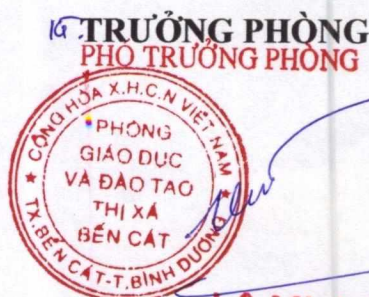 KT.TRƯỞNG PHÒNG
PHÓ TRƯỞNG PHÒNG
CỘNG HÒA X.H.C.N VIỆT NAM
PHÒNG
GIÁO DỤC
VÀ ĐÀO TẠO
THỊ XÃ
BẾN CÁT
TX.BẾN CÁT-T.BÌNH DƯƠNG